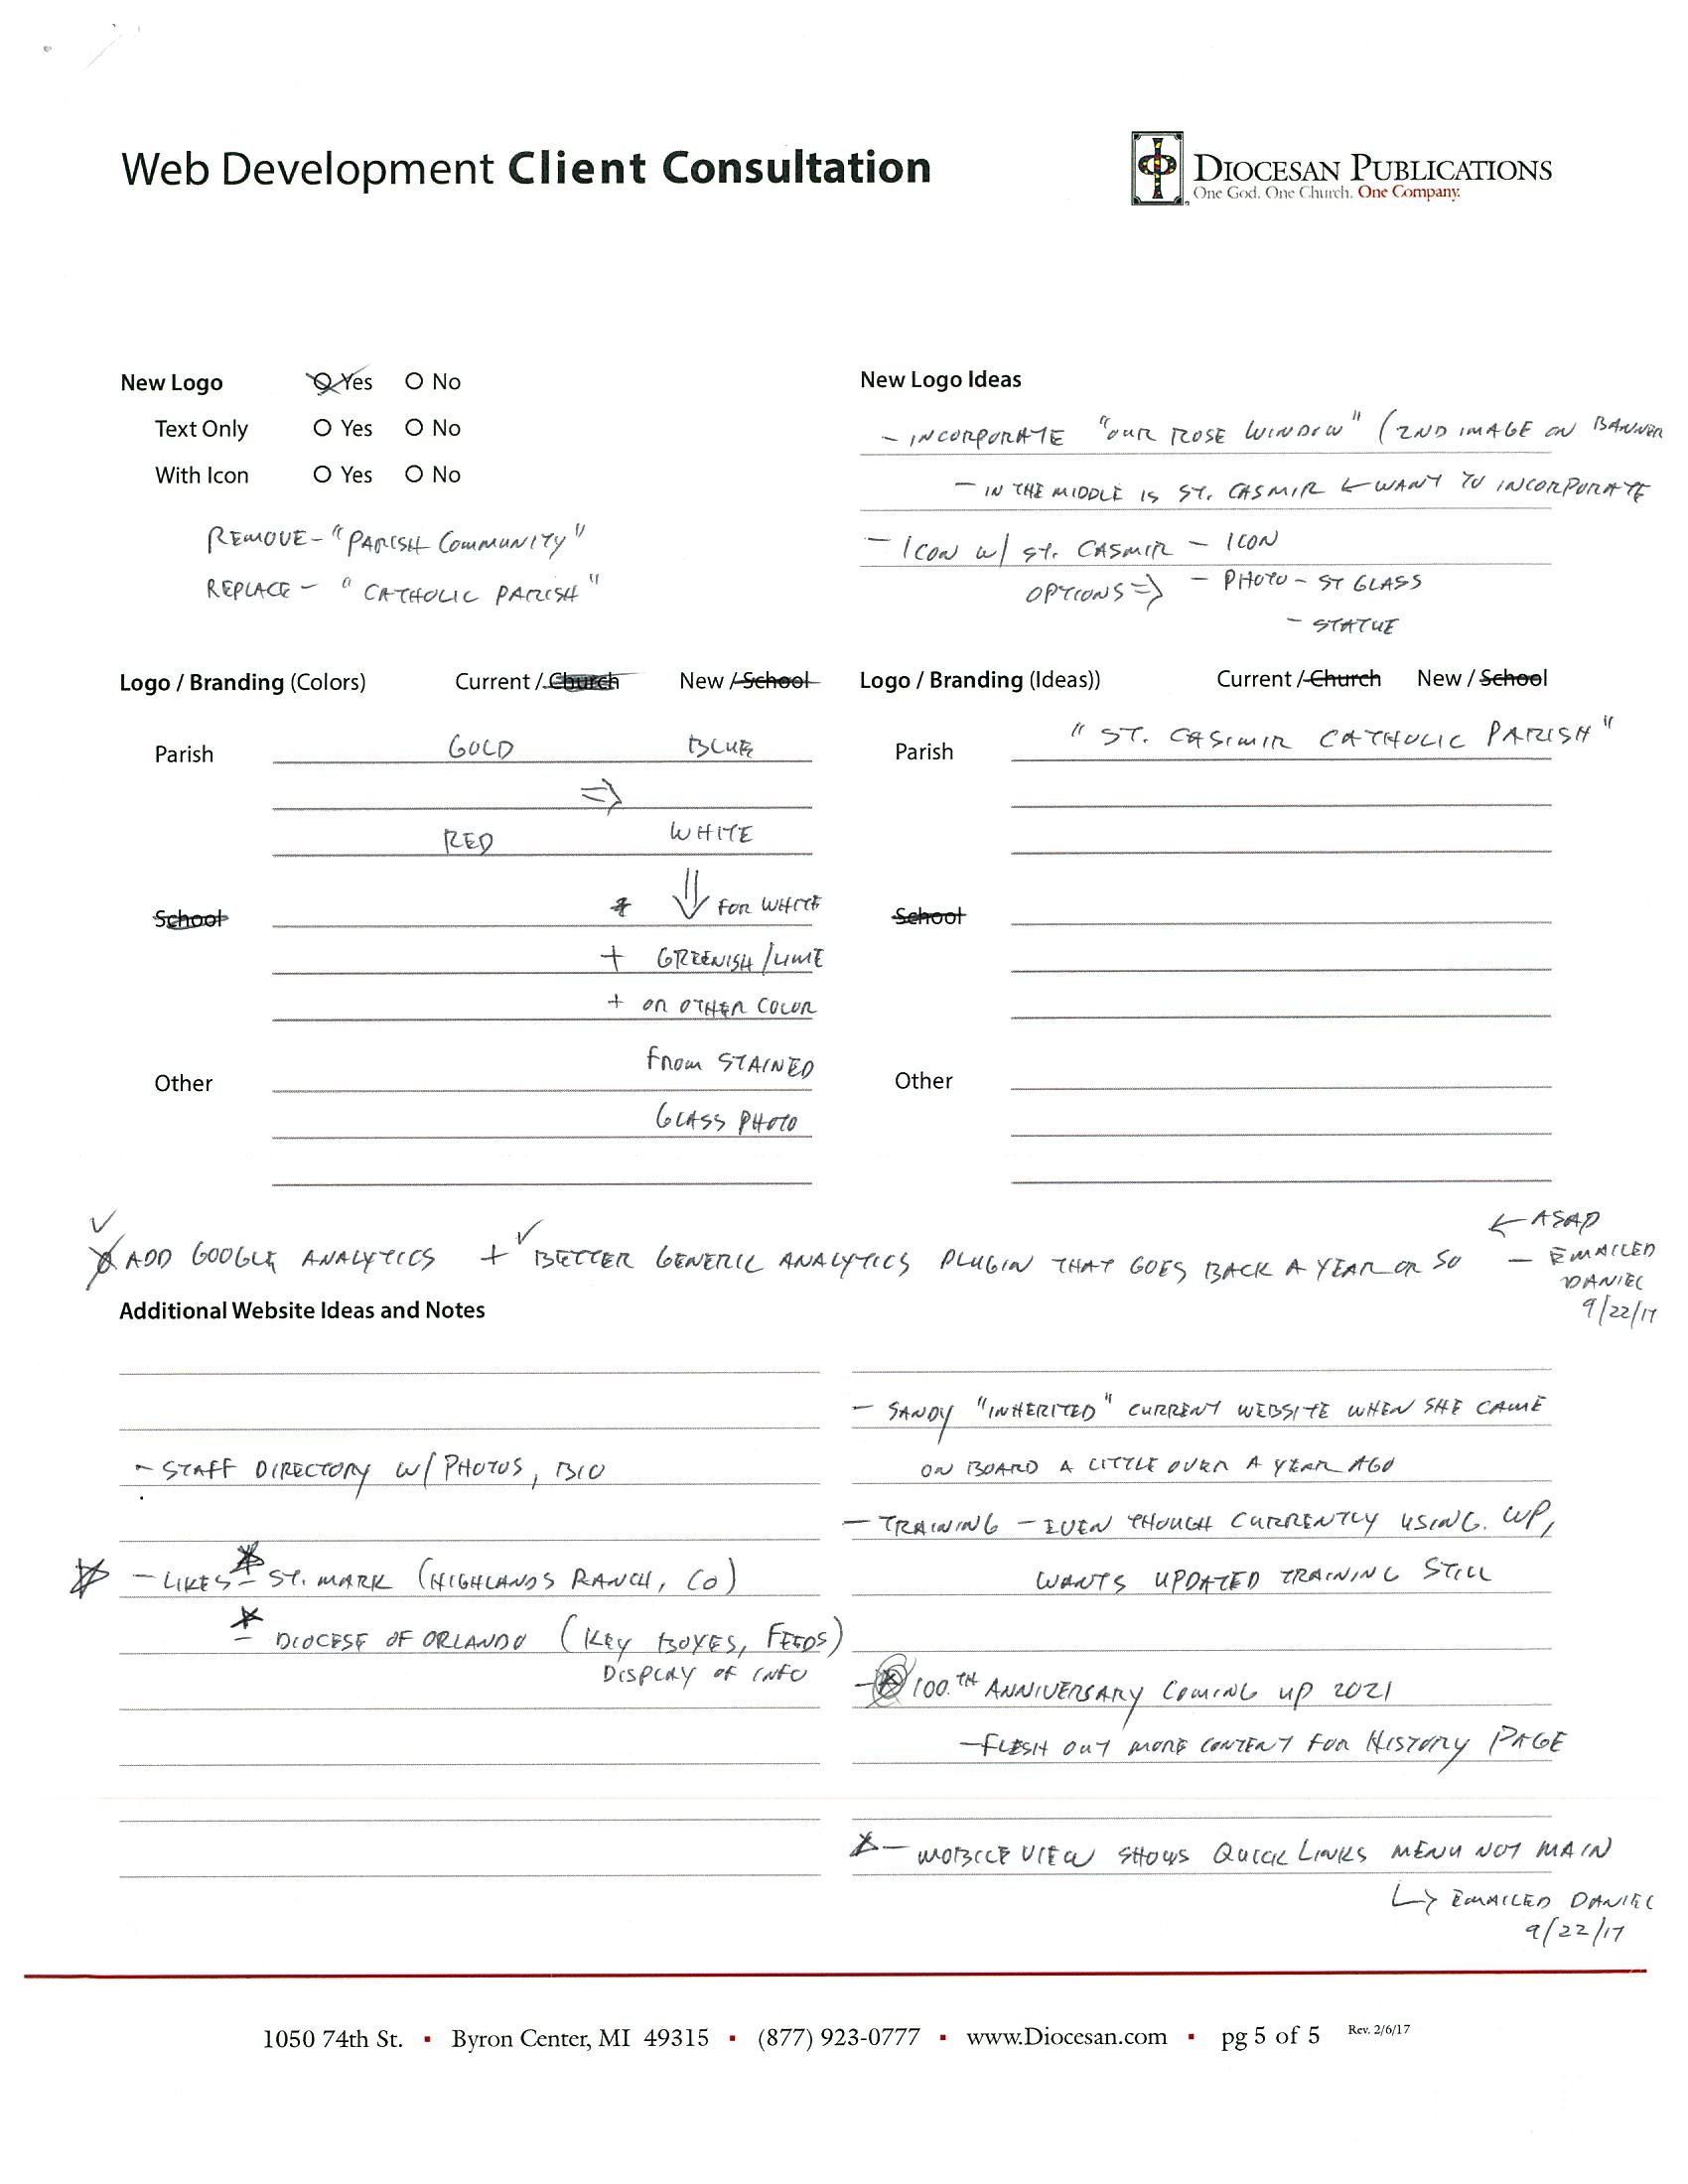 Web Development Client Consultation
DIOCESAN PUBLICATIONS
One God. One Church. One Company.
New Logo Yes No
Text Only Yes No
With Icon Yes No
REMOVE - "PARISH COMMUNITY"
REPLACE - "CATHOLIC PARISH"
New Logo Ideas
- INCORPORATE "OUR ROSE WINDOW" (2ND IMAGE ON BANNER
- IN THE MIDDLE IS ST. CASMIR ← WANT TO INCORPORATE
- ICON W/ ST. CASMIR - ICON
OPTIONS ⇒ - PHOTO - ST GLASS
- STATUE
Logo / Branding (Colors) Current / Church New / School
Parish GOLD BLUE
⇒
RED WHITE
School * ⇓ FOR WHITE
+ GREENISH/LIME
+ OR OTHER COLOR
FROM STAINED
Other
GLASS PHOTO
Logo / Branding (Ideas)) Current / Church New / School
Parish "ST. CASIMIR CATHOLIC PARISH"
School
Other
✓ ADD GOOGLE ANALYTICS + ✓ BETTER GENERIC ANALYTICS PLUGIN THAT GOES BACK A YEAR OR SO
← ASAP
- EMAILED
DANIEL
9/22/17
Additional Website Ideas and Notes
- STAFF DIRECTORY W/ PHOTOS, BIO
* - LIKES * - ST. MARK (HIGHLANDS RANCH, CO)
* - DIOCESE OF ORLANDO (KEY BOXES, FEEDS)
DISPLAY OF INFO
- SANDY "INHERITED" CURRENT WEBSITE WHEN SHE CAME
ON BOARD A LITTLE OVER A YEAR AGO
- TRAINING - EVEN THOUGH CURRENTLY USING WP,
WANTS UPDATED TRAINING STILL
- * 100TH ANNIVERSARY COMING UP 2021
- FLESH OUT MORE CONTENT FOR HISTORY PAGE
* - MOBILE VIEW SHOWS QUICK LINKS MENU NOT MAIN
↳ EMAILED DANIEL
9/22/17
1050 74th St. ▪ Byron Center, MI 49315 ▪ (877) 923-0777 ▪ www.Diocesan.com ▪ pg 5 of 5 Rev. 2/6/17